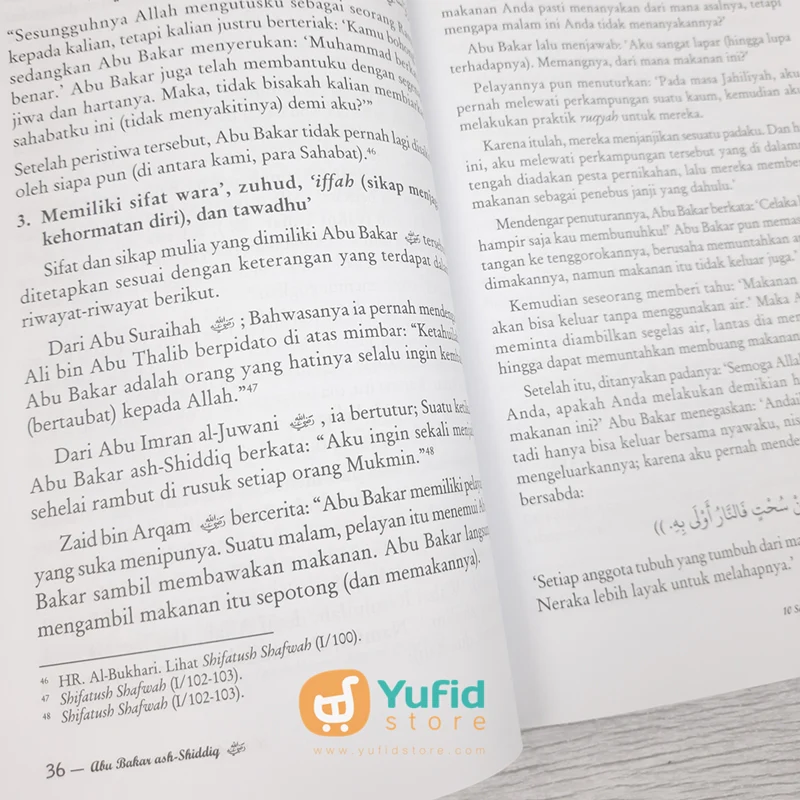 "Sesungguhnya Allah mengutusku sebagai seorang
kepada kalian, tetapi kalian justru berteriak: 'Kamu
sedangkan Abu Bakar menyerukan: 'Muhammad
benar.' Abu Bakar juga telah membantuku dengan
jiwa dan hartanya. Maka, tidak bisakah kalian
sahabatku ini (tidak menyakitinya) demi aku?'"
Setelah peristiwa tersebut, Abu Bakar tidak pernah lagi
oleh siapa pun (di antara kami, para Sahabat).46
3. Memiliki sifat wara', zuhud, 'iffah (sikap
kehormatan diri), dan tawadhu'
Sifat dan sikap mulia yang dimiliki Abu Bakar
ditetapkan sesuai dengan keterangan yang terdapat
riwayat-riwayat berikut.
Dari Abu Suraihah ; Bahwasanya ia pernah
Ali bin Abu Thalib berpidato di atas mimbar:
Abu Bakar adalah orang yang hatinya selalu ingin
(bertaubat) kepada Allah."47
Dari Abu Imran al-Juwani , ia bertutur; Suatu
Abu Bakar ash-Shiddiq berkata: "Aku ingin sekali
sehelai rambut di rusuk setiap orang Mukmin."48
Zaid bin Arqam bercerita: "Abu Bakar memiliki
yang suka menipunya. Suatu malam, pelayan itu menemui
Bakar sambil membawakan makanan. Abu Bakar
mengambil makanan itu sepotong (dan memakannya).
46 HR. Al-Bukhari. Lihat Shifatush Shafwah (I/100).
47 Shifatush Shafwah (I/102-103).
48 Shifatush Shafwah (I/102-103).
36 — Abu Bakar ash-Shiddiq
makanan Anda pasti menanyakan dari mana asalnya, tetapi
mengapa malam ini Anda tidak menanyakannya?'
Abu Bakar lalu menjawab: 'Aku sangat lapar (hingga lupa
terhadapnya). Memangnya, dari mana makanan ini?'
Pelayannya pun menuturkan: 'Pada masa Jahiliyah, aku
pernah melewati perkampungan suatu kaum, kemudian
melakukan praktik ruqyah untuk mereka.
Karena itulah, mereka menjanjikan sesuatu padaku. Dan
ini, aku melewati perkampungan tersebut yang di
tengah diadakan pesta pernikahan, lalu mereka
makanan sebagai penebus janji yang dahulu.'
Mendengar penuturannya, Abu Bakar berkata: 'Celaka
hampir saja kau membunuhku!' Abu Bakar pun
tangan ke tenggorokannya, berusaha memuntahkan
dimakannya, namun makanan itu tidak keluar juga.'
Kemudian seseorang memberi tahu: 'Makanan
akan bisa keluar tanpa menggunakan air.' Maka
meminta diambilkan segelas air, lantas dia
hingga dapat memuntahkan membuang makanan
Setelah itu, ditanyakan padanya: 'Semoga Allah
Anda, apakah Anda melakukan demikian
makanan ini?' Abu Bakar menegaskan:
tadi hanya bisa keluar bersama nyawaku,
mengeluarkannya; karena aku pernah
bersabda:
سُحْتٍ فَالنَّارُ أَوْلَى بِهِ. ))
'Setiap anggota tubuh yang tumbuh dari
Neraka lebih layak untuk melahapnya.'
10
Yufid
store
www.yufidstore.com